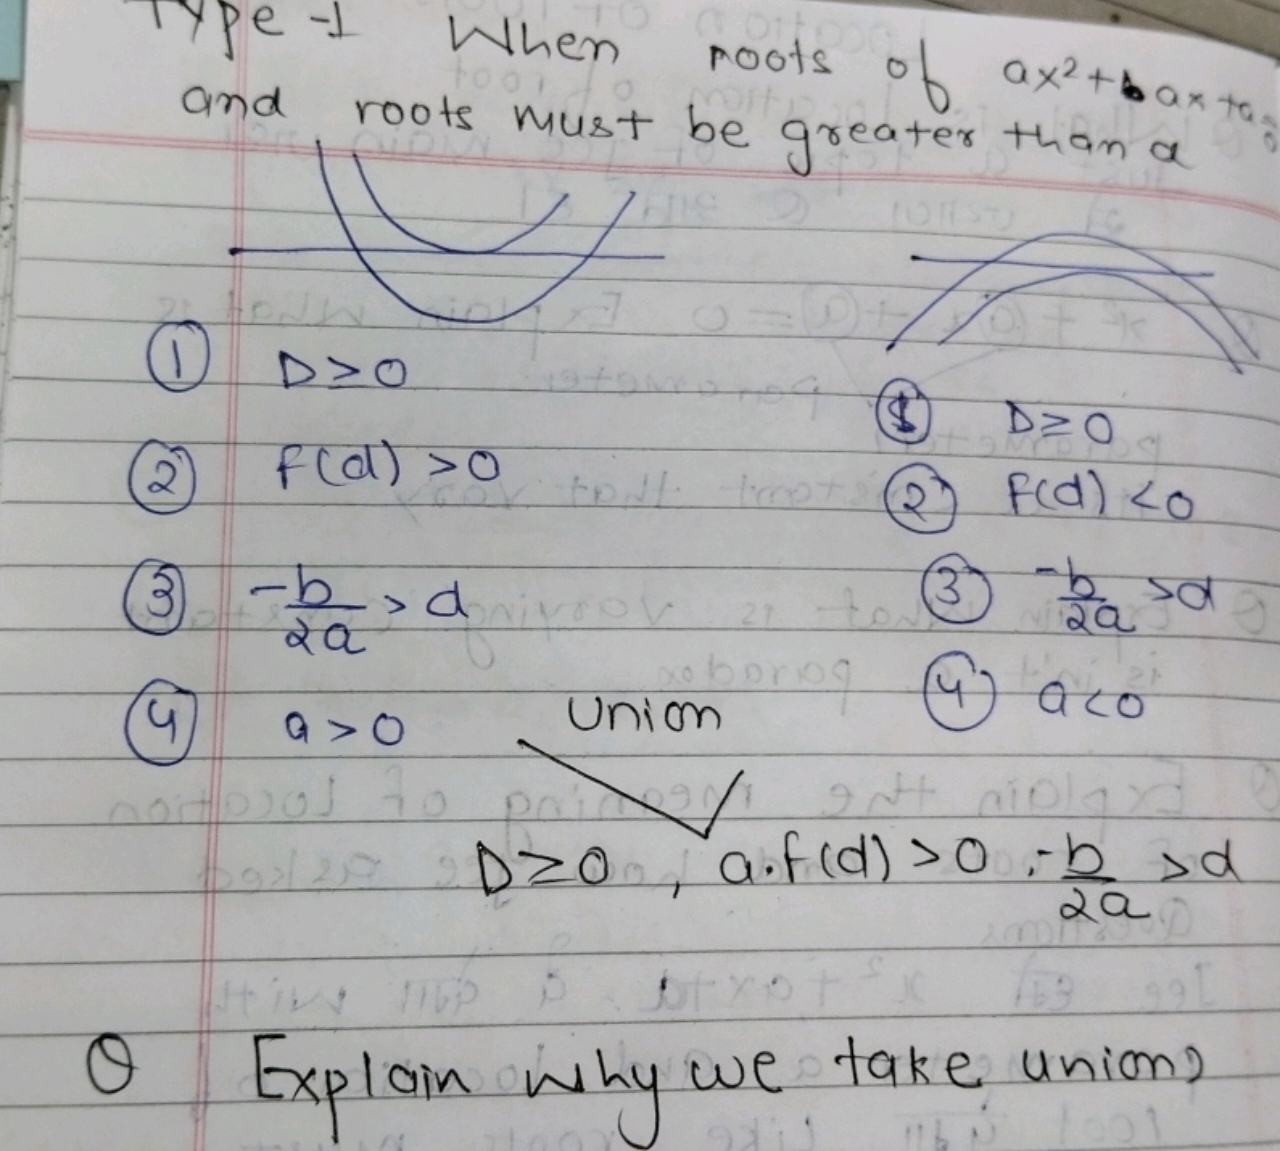 Type -1 When roots of ax²+ ax+a=0
and roots must be greater than d
① D≥0
② f(d) >0
③ -b/2a > d
④ a>0
① D≥0
② f(d) <0
③ -b/2a >d
④ a<0
Union
D≥0, a.f(d) >0, -b/2a >d
Q Explain why we take union?